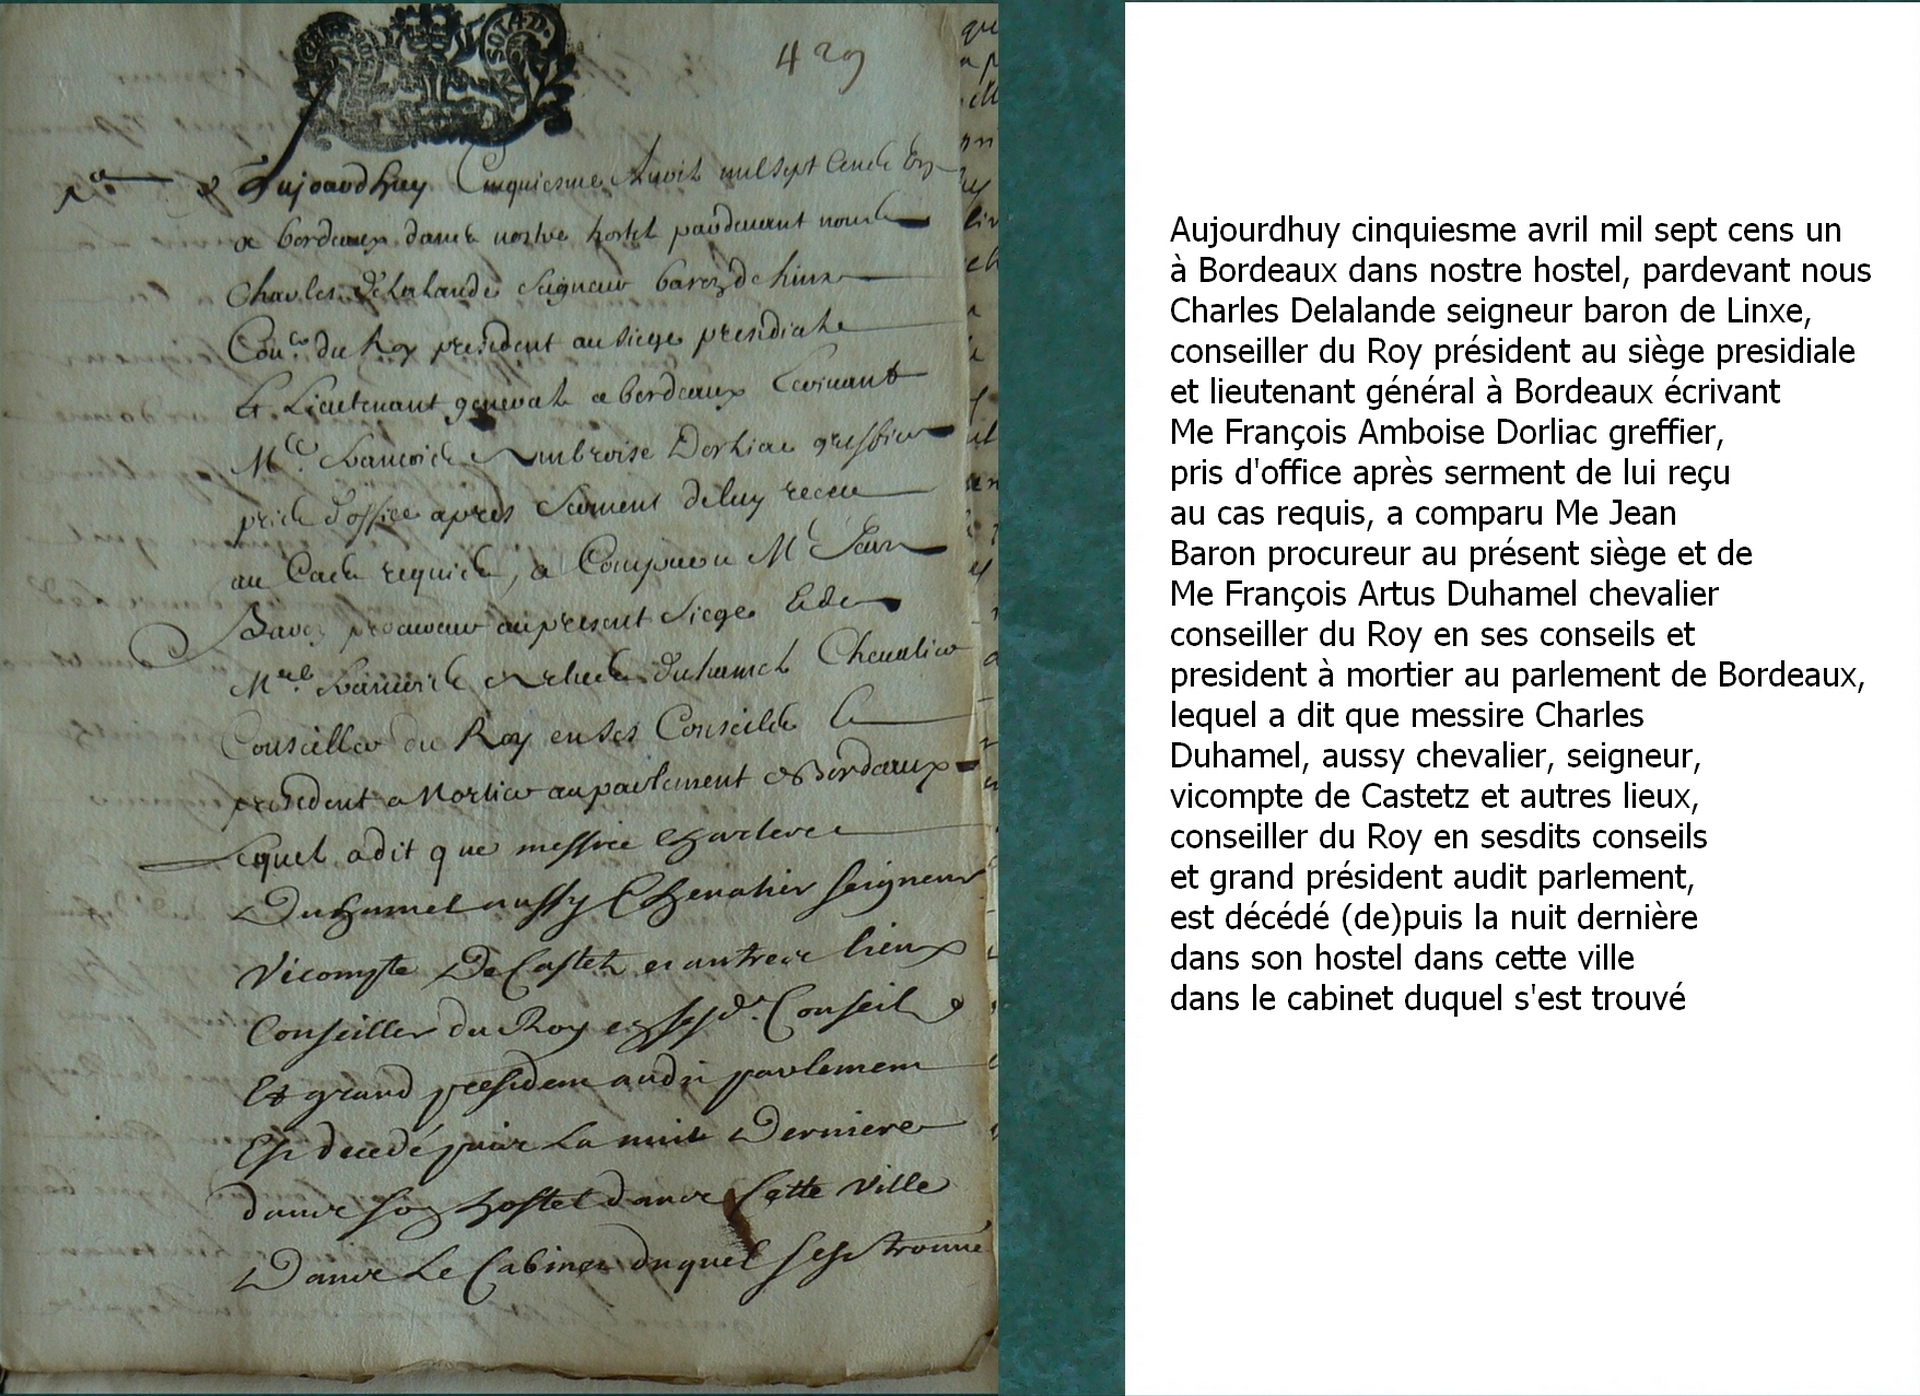 429
Aujourdhuy Cinquiesme Avril mil sept cents un
a bordeaux dans nostre hostel pardevant nous
Charles Delalande Seigneur baron de Linxe
Con.er du Roy president au siege presidial
Et Lieutenant general a bordeaux Ecrivant
Me francois Ambroise Dorliac greffier
pris d'office apres serment de luy receu
au Cas requis, a Comparu Me Jean
Baron procureur au present siege Et de
M.re francois Artus duhamel Chevalier
Conseiller du Roy en ses Conseils Et
president a Mortier au parlement de Bordeaux
Lequel a dit que messire Charles
Duhamel aussy Chevalier seigneur
Vicompte De Castetz et autres lieux
Conseiller du Roy en sesd. Conseils
Et grand president audit parlement
Est decedé puis La nuit Derniere
dans son hostel dans Cette Ville
Dans Le Cabinet duquel sest trouvé
Aujourdhuy cinquiesme avril mil sept cens un
à Bordeaux dans nostre hostel, pardevant nous
Charles Delalande seigneur baron de Linxe,
conseiller du Roy président au siège presidiale
et lieutenant général à Bordeaux écrivant
Me François Amboise Dorliac greffier,
pris d'office après serment de lui reçu
au cas requis, a comparu Me Jean
Baron procureur au présent siège et de
Me François Artus Duhamel chevalier
conseiller du Roy en ses conseils et
president à mortier au parlement de Bordeaux,
lequel a dit que messire Charles
Duhamel, aussy chevalier, seigneur,
vicompte de Castetz et autres lieux,
conseiller du Roy en sesdits conseils
et grand président audit parlement,
est décédé (de)puis la nuit dernière
dans son hostel dans cette ville
dans le cabinet duquel s'est trouvé